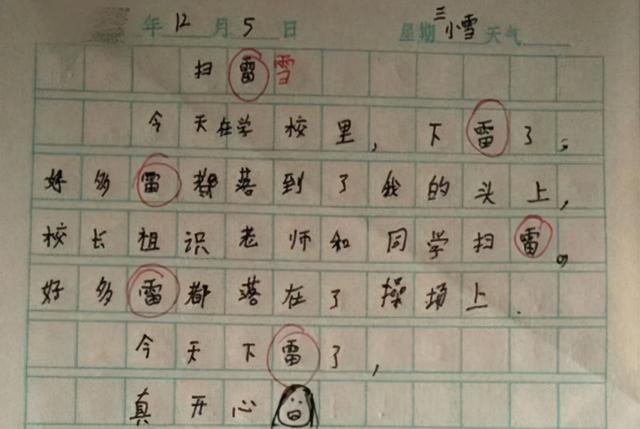 年12月5日 星期三 小雪天气
扫雷雪
今天在学校里，下雷了。
好多雷都落到了我的头上，
校长祖识老师和同学扫雷。
好多雷都落在了操场上.
今天下雷了，
真开心